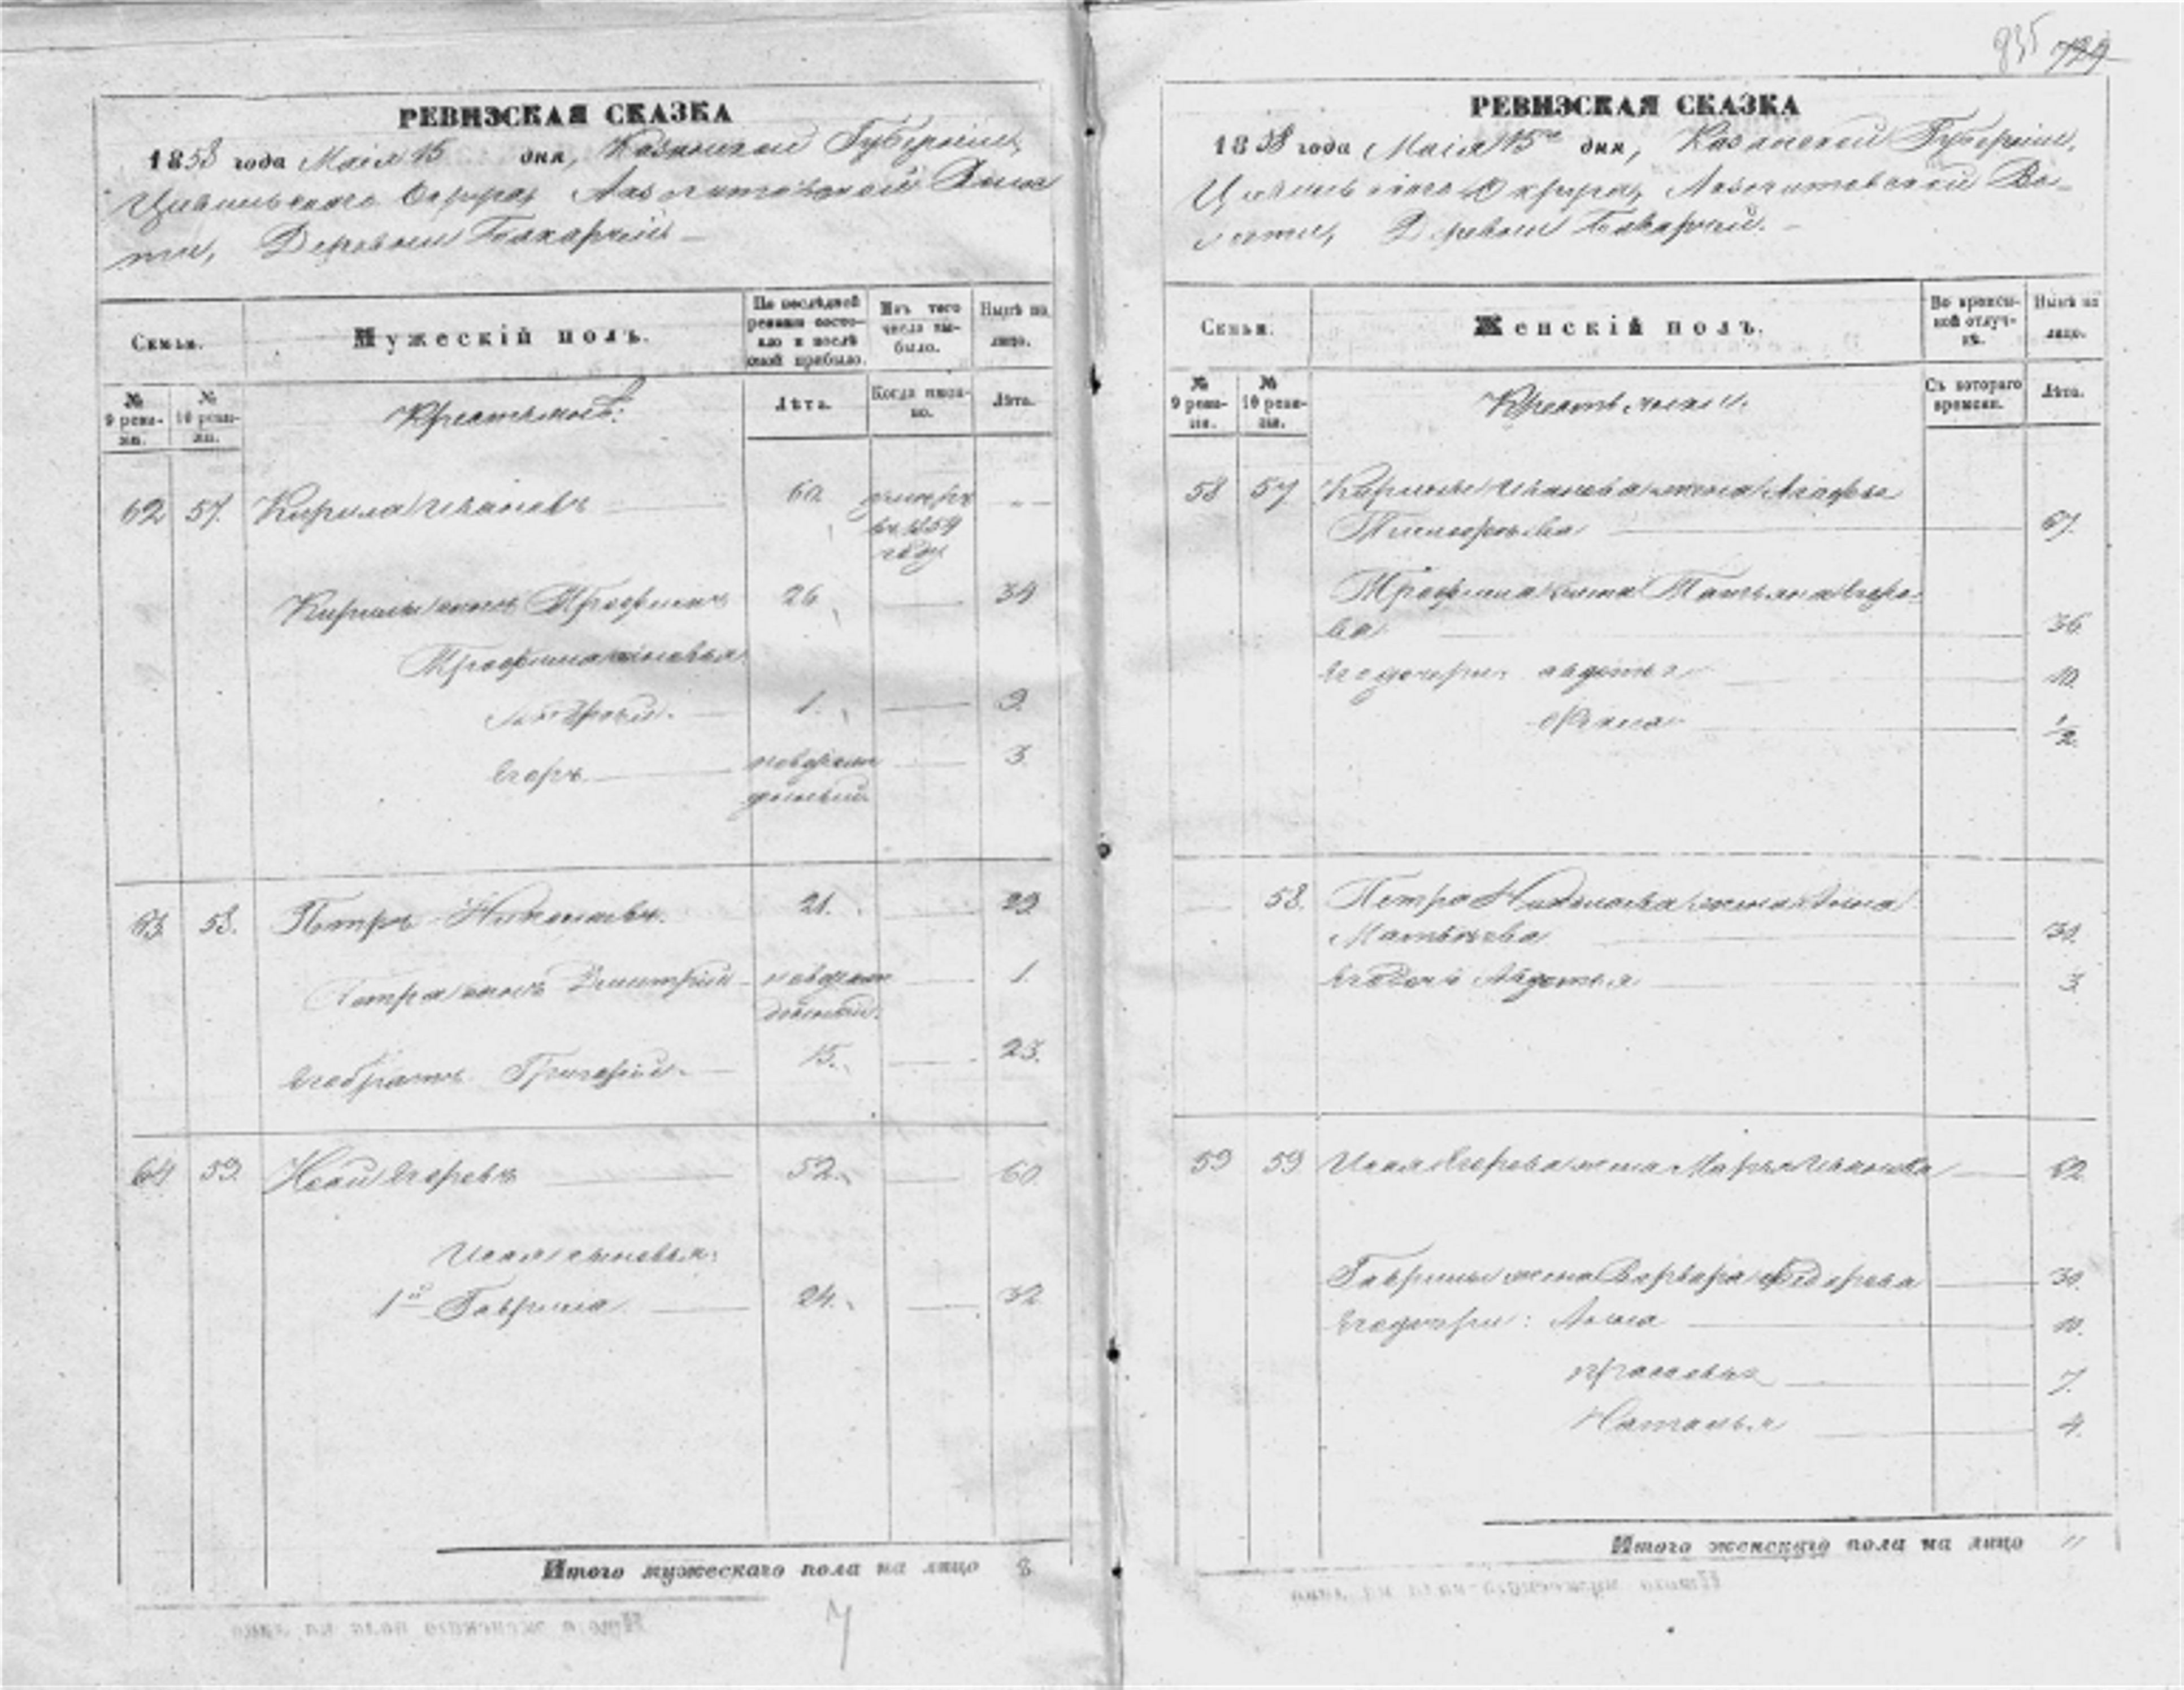 935 729
РЕВИЗСКАЯ СКАЗКА
1858 года Маія 15 дня, Казанской Губерніи,
Цивильскаго Округа,
ти, Деревни
Семьи.
Мужескій полъ.
По послѣдней ревизіи состояло и послѣ оной прибыло.
Изъ того числа выбыло.
Нынѣ на лицо.
№ 9 ревизіи.
№ 10 ревизіи.
Крестьяне:
Лѣта.
Когда именно.
Лѣта.
62 57. Кирила Ивановъ 60. умеръ
въ 1854
году
Кирилы сынъ Трофимъ 26 34
Трофима сыновья
1. 9.
Егоръ новорож 3.
денный.
63. 58. Петръ Николаевъ. 21. 29
Петра сынъ Дмитрій новорож 1.
денный.
Его братъ Григорій. 15. 23.
64 59. Исай Егоровъ 52. 60.
Исая сыновья:
1й Гаврила 24. 32
Итого мужескаго пола на лицо 8
РЕВИЗСКАЯ СКАЗКА
1858 года Маія 15го дня, Казанской Губерніи,
Цивильскаго Округа, Во-
лости, Деревни
Семьи.
Женскій полъ.
Во временной отлучкѣ.
Нынѣ на лицо.
№ 9 ревизіи.
№ 10 ревизіи.
Съ котораго времени.
Лѣта.
58 57 Кирилы Иванова жена Агафья
67.
Трофима жена Татьяна Егоро-
ва 36
Его дочери: Авдотья 10.
1/2
58. Петра Николаева жена Анна
Матвѣева 30.
Его дочь Авдотья 3
59 59 Исая Егорова жена Марья Иванова 62
Гаврилы жена Варвара Федорова 30.
Его дочери: Анна 10.
Прасковья 7.
Наталья 4.
Итого женскаго пола на лицо 11